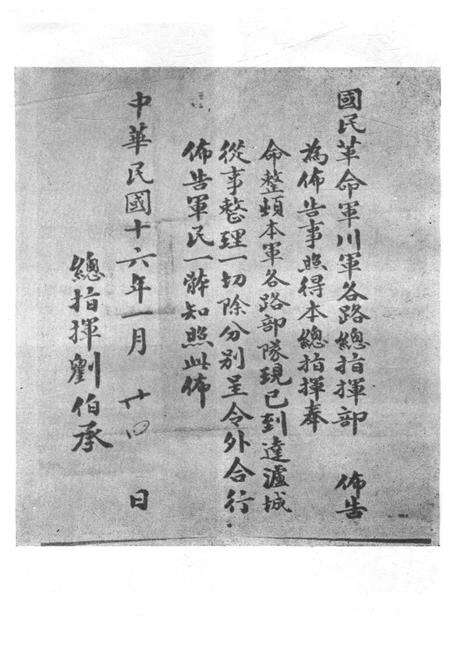 國民革命軍川軍各路總指揮部 佈告
為佈告事照得本總指揮奉
命整頓本軍各路部隊現已到達瀘城
從事整理一切除分別呈令外合行
佈告軍民一体知照此佈
中華民國十六年一月廿四日
總指揮劉伯承